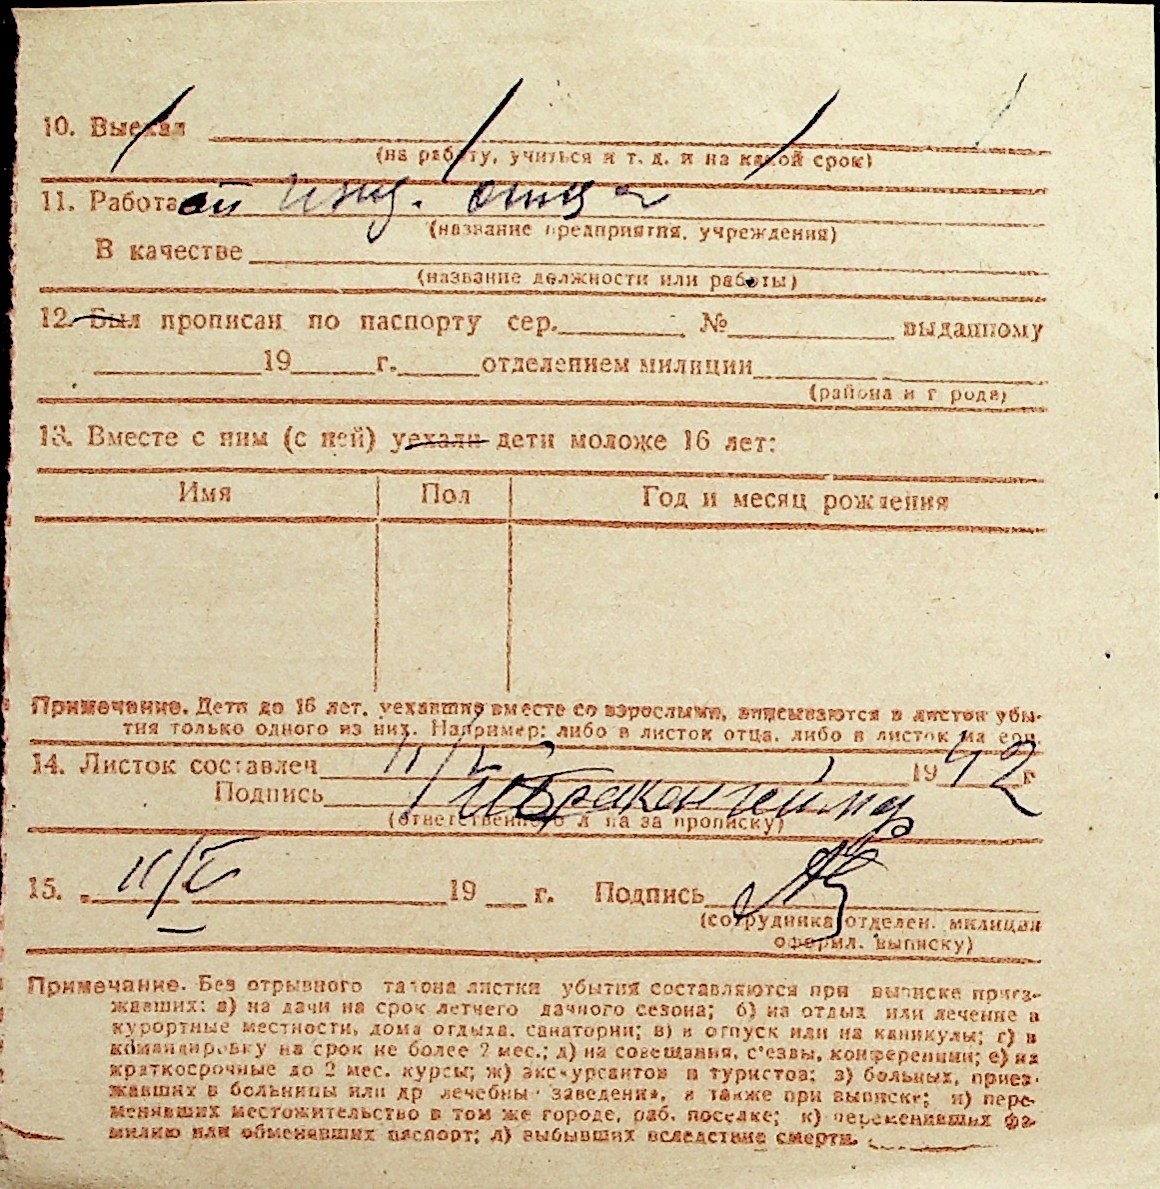 10. Выехал
(на работу, учиться и т. д. и на какой срок)
11. Работа
(название предприятия, учреждения)
В качестве
(название должности или работы)
12. Был прописан по паспорту сер. № выданному
19 г. отделением милиции
(района и города)
13. Вместе с ним (с ней) уехали дети моложе 16 лет:
Имя Пол Год и месяц рождения
Примечание. Дети до 16 лет, уехавшие вместе со взрослыми, вписываются в листок убы-
тия только одного из них. Например: либо в листок отца, либо в листок матери
14. Листок составлен 11/V 1942 г
Подпись
(ответственного л на за прописку)
15. 11/V 19 г. Подпись
(сотрудника отделен. милиции
оформл. выписку)
Примечание. Без отрывного талона листки убытия составляются при выписке приез-
жавших: а) на дачи на срок летнего дачного сезона; б) на отдых или лечение в
курортные местности, дома отдыха, санатории; в) в отпуск или на каникулы; г) в
командировку на срок не более 2 мес.; д) на совещания, с'езды, конференции; е) на
краткосрочные до 2 мес. курсы; ж) экскурсантов и туристов; з) больных, приез-
жавших в больницы или др лечебны заведения, а также при выписке; и) пере-
менявших местожительство в том же городе, раб. поселке; к) переменивших фа-
милию или обменявших паспорт; л) выбывших вследствие смерти.